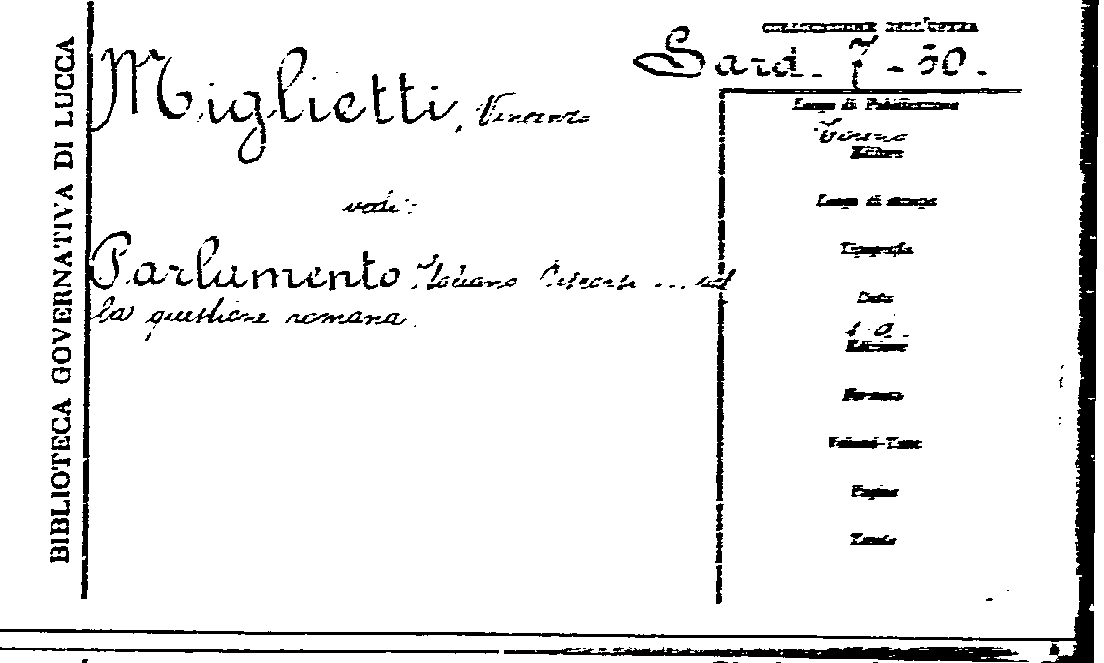 BIBLIOTECA GOVERNATIVA DI LUCCA
COLLOCAZIONE DELL'OPERA
Sard. 7-50.
Miglietti, Vincenzo
vedi:
Parlamento Italiano Discorsi ... sul
la questione romana.
Luogo di Pubblicazione
Torino
Editore
Luogo di stampa
Tipografia
Data
s.a.
Edizione
Formato
Volumi-Tomi
Pagine
Tavole